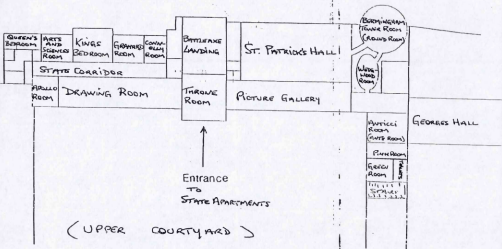 QUEEN'S
BEDROOM
ARTS
AND
SCIENCES
ROOM
KINGS
BEDROOM
GRANARD
ROOM
CONN-
OLLY
ROOM
BATTLEAXE
LANDING
ST. PATRICK'S HALL
BERMINGHAM
TOWER ROOM
(ROUND ROOM)
WEDG-
WOOD
ROOM
STATE CORRIDOR
APOLLO
ROOM
DRAWING ROOM
THRONE
ROOM
PICTURE GALLERY
GEORGES HALL
ROOM
PINK ROOM
GREEN
ROOM
TOILETS
STAIRS
Entrance
TO
STATE APARTMENTS
(UPPER COURTYARD)